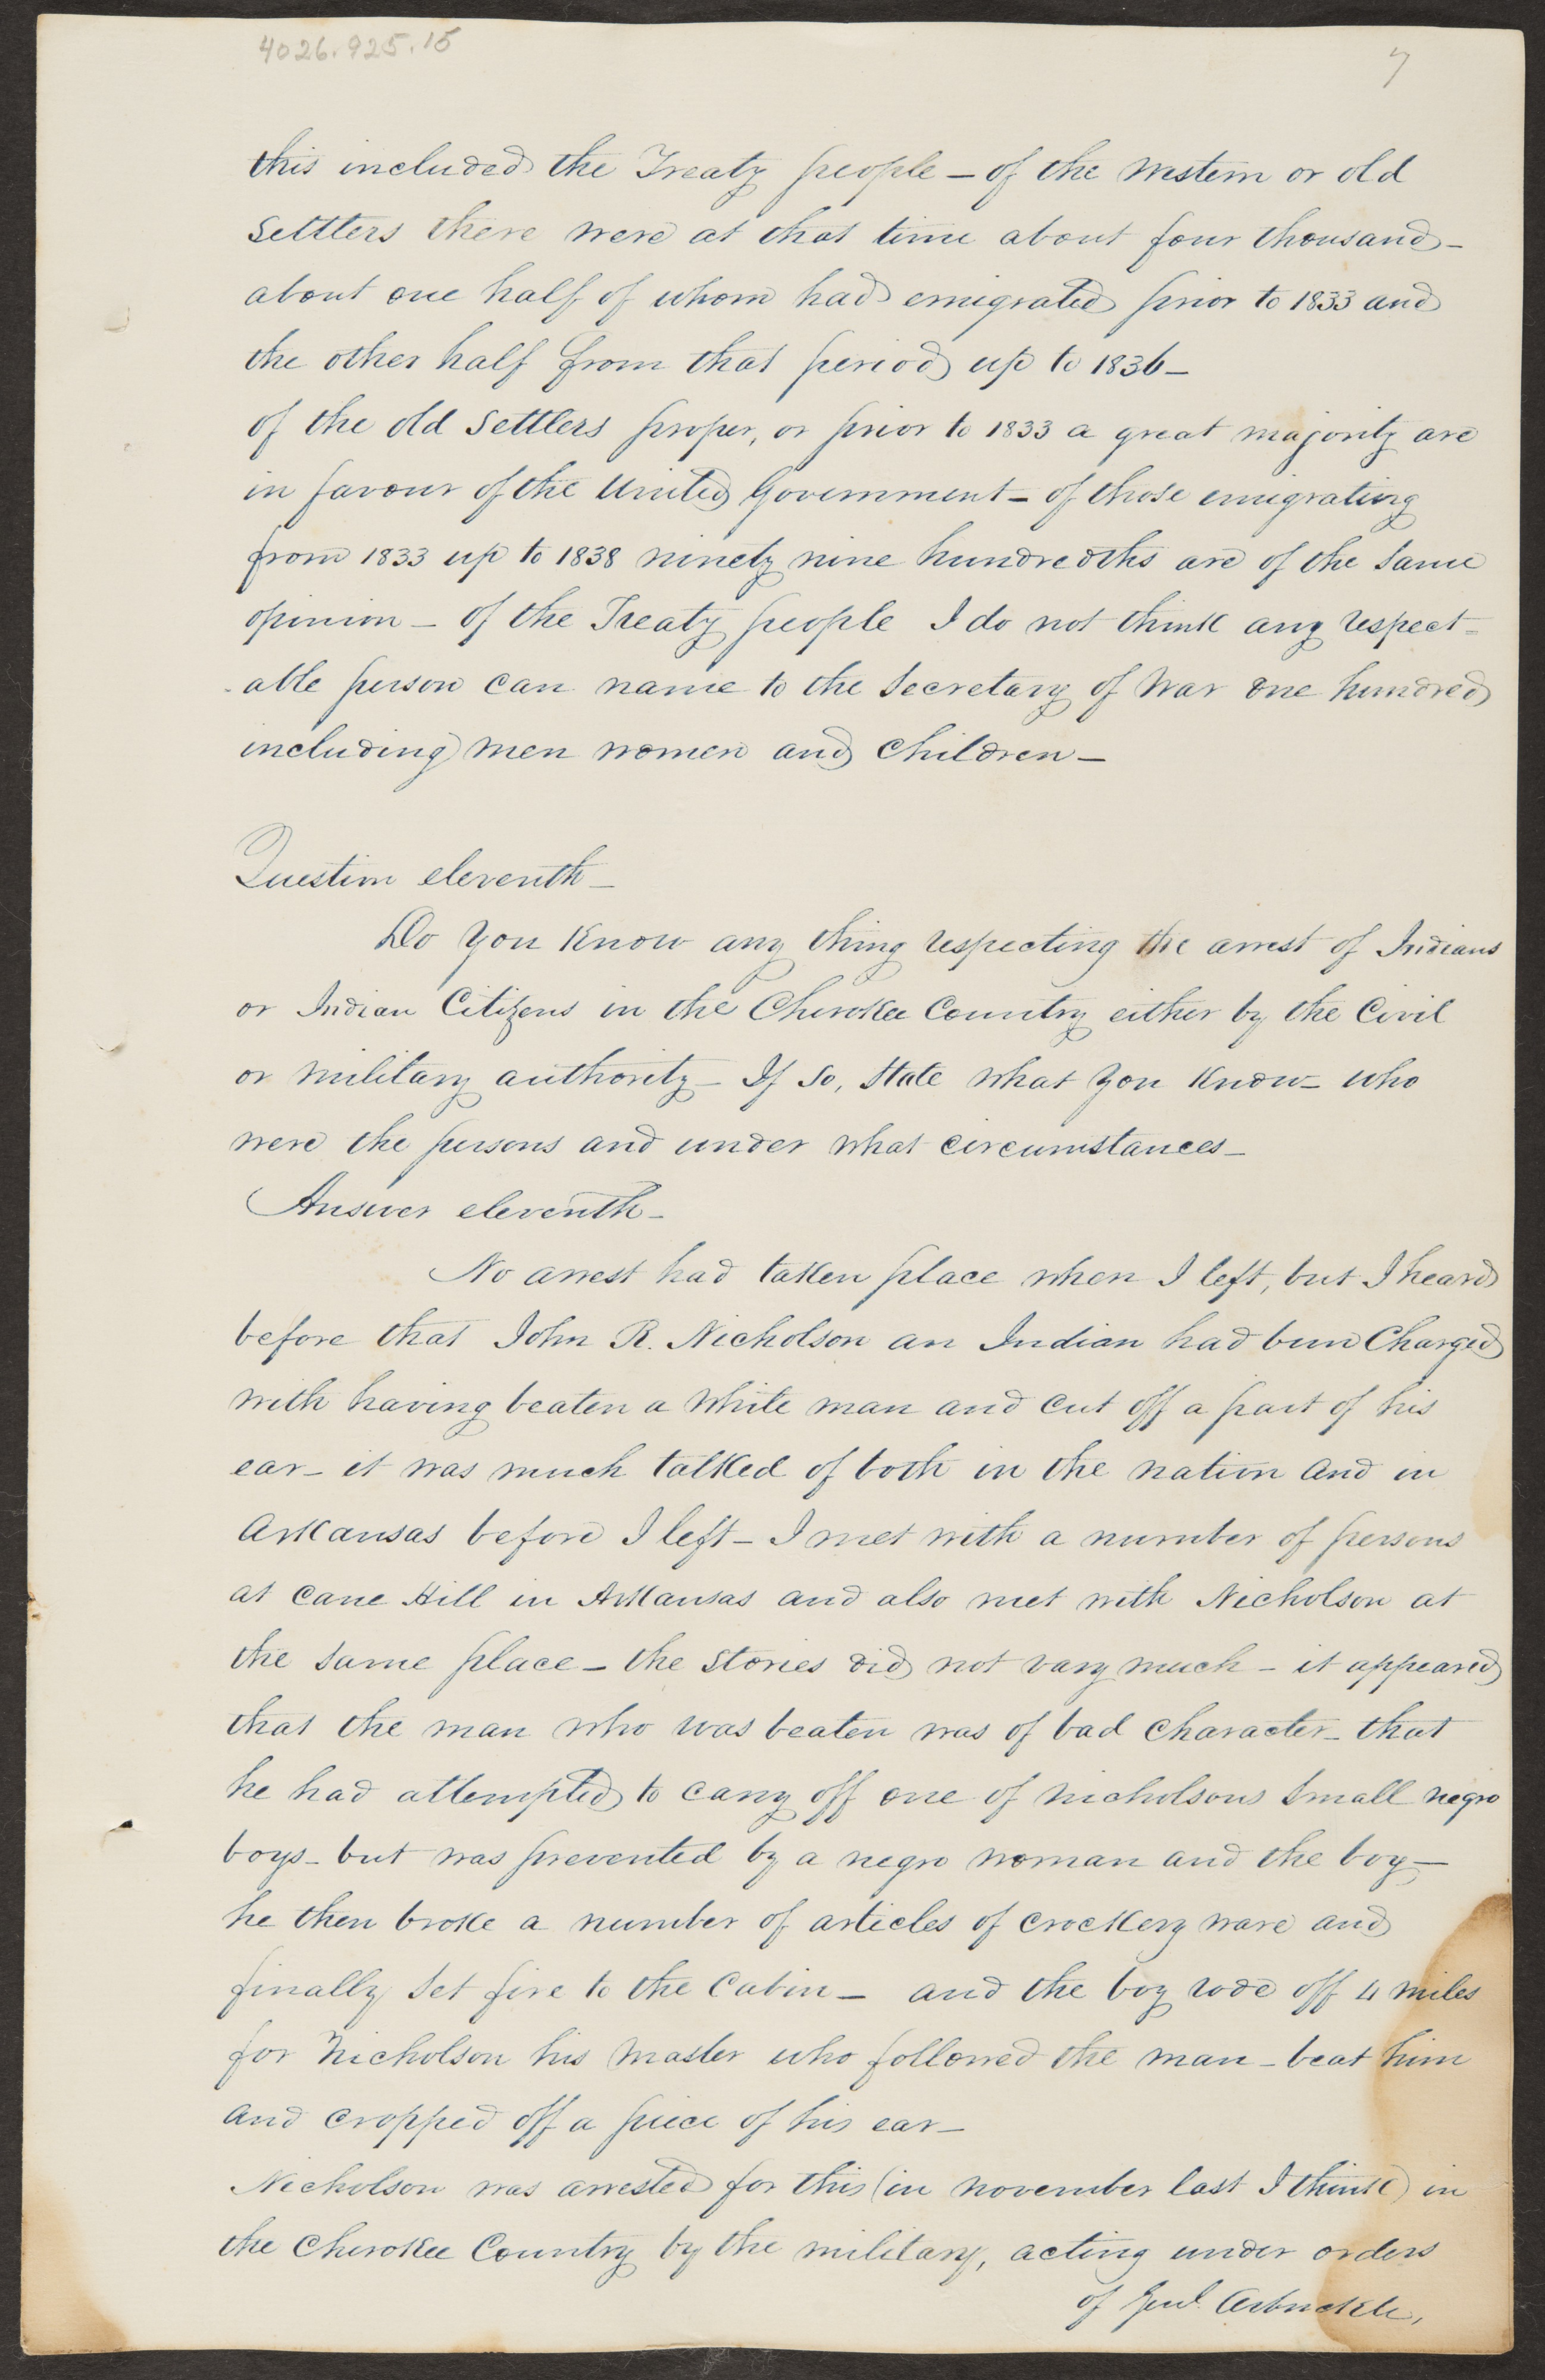 4026.925.15
7
this included the Treaty people – of the western or old
settlers there were at that time about four thousand –
about one half of whom had emigrated prior to 1833 and
the other half from that period up to 1836 –
of the old settlers proper, or prior to 1833 a great majority are
in favour of the United Government – of those emigrating
from 1833 up to 1838 ninety nine hundredths are of the same
opinion – of the Treaty people I do not think any respect-
-able person can name to the Secretary of War one hundred
including men women and children –
Question eleventh –
Do you know any thing respecting the arrest of Indians
or Indian Citizens in the Cherokee Country either by the Civil
or military authority – If so, State what you know – who
were the persons and under what circumstances –
Answer eleventh –
No arrest had taken place when I left, but I heard
before that John R. Nicholson an Indian had been Charged
with having beaten a white man and cut off a part of his
ear – it was much talked of both in the nation and in
Arkansas before I left – I met with a number of persons
at Cane Hill in Arkansas and also met with Nicholson at
the same place – the stories did not vary much – it appeared
that the man who was beaten was of bad character – that
he had attempted to carry off one of nicholsons small negro
boys – but was prevented by a negro woman and the boy –
he then broke a number of articles of crockery ware and
finally set fire to the Cabin – and the boy rode off 4 miles
for Nicholson his master who followed the man – beat him
and cropped off a piece of his ear –
Nicholson was arrested for this (in november last I think) in
the Cherokee Country by the military, acting under orders
of Genl. Arbuckle,